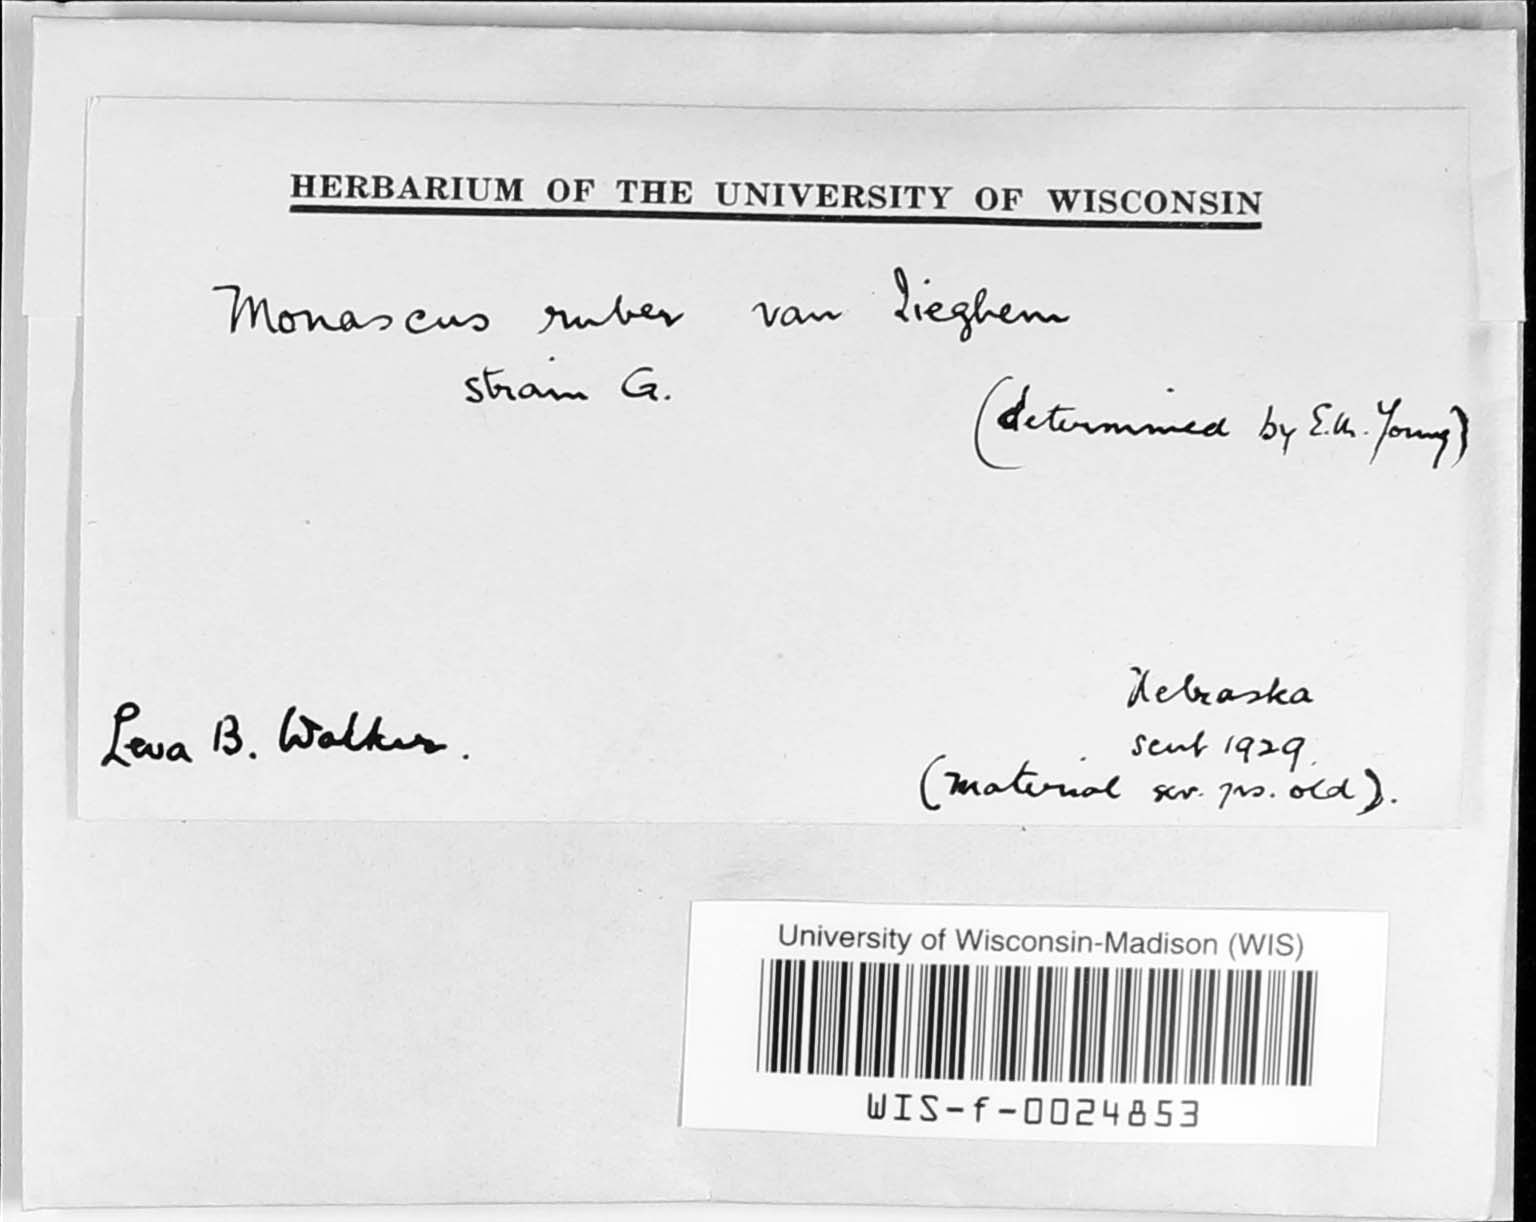 HERBARIUM OF THE UNIVERSITY OF WISCONSIN
Monascus ruber van Tieghem
strain G.
(determined by E.M. Young)
Nebraska
Leva B. Walker.
sent 1929.
(material sev. yrs. old).
University of Wisconsin-Madison (WIS)
WIS-f-0024853